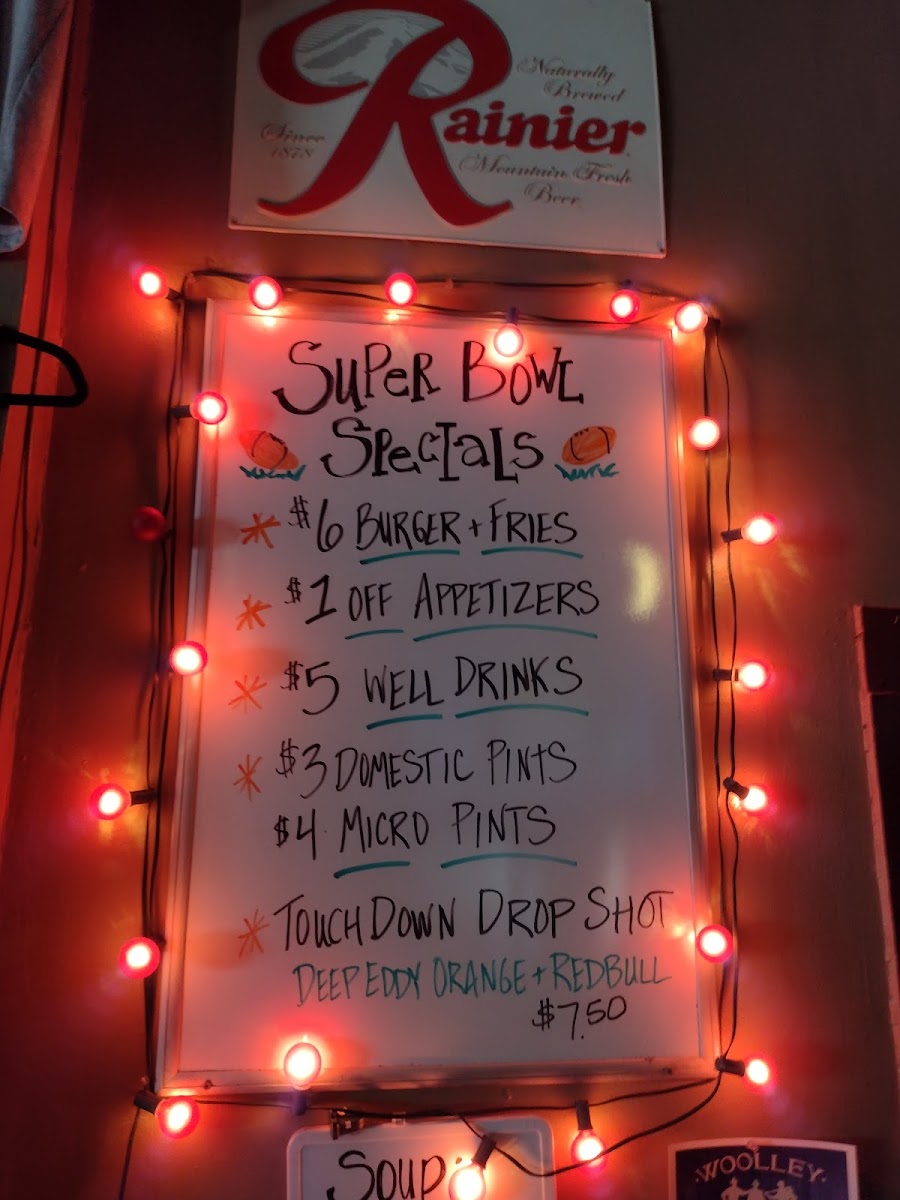 Naturally
Brewed
Rainier
Since
1878
Mountain Fresh
Beer
SUPER BOWL
SPECIALS
* $6 BURGER + FRIES
* $1 OFF APPETIZERS
* $5 WELL DRINKS
* $3 DOMESTIC PINTS
$4 MICRO PINTS
* TOUCHDOWN DROP SHOT
DEEP EDDY ORANGE + REDBULL
$7.50
SOUP
·WOOLLEY·